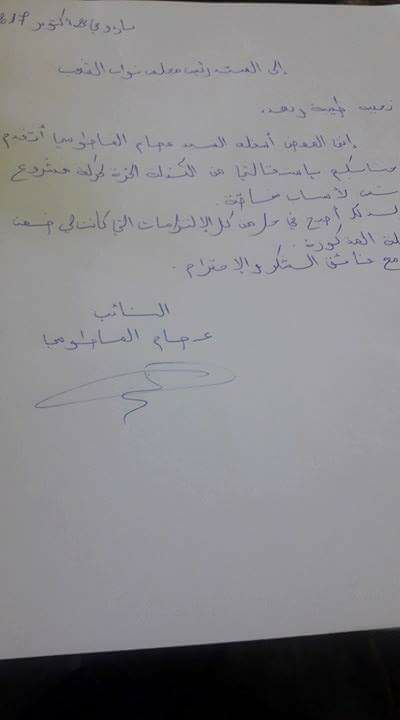 باردو في 28 أكتوبر 2017
إلى السيد رئيس مجلس نواب الشعب
تحية طيبة وبعد،
إني الممضي أسفله السيد عصام الماطوسي أتقدم
باستقالتي من الكتلة الحرة لحركة مشروع
تونس لأسباب خاصة.
وبذلك أصبح في حل من كل الإلتزامات التي كانت لي ضمن
الكتلة المذكورة.
مع فائق الشكر والإحترام.
النائب
عصام الماطوسي